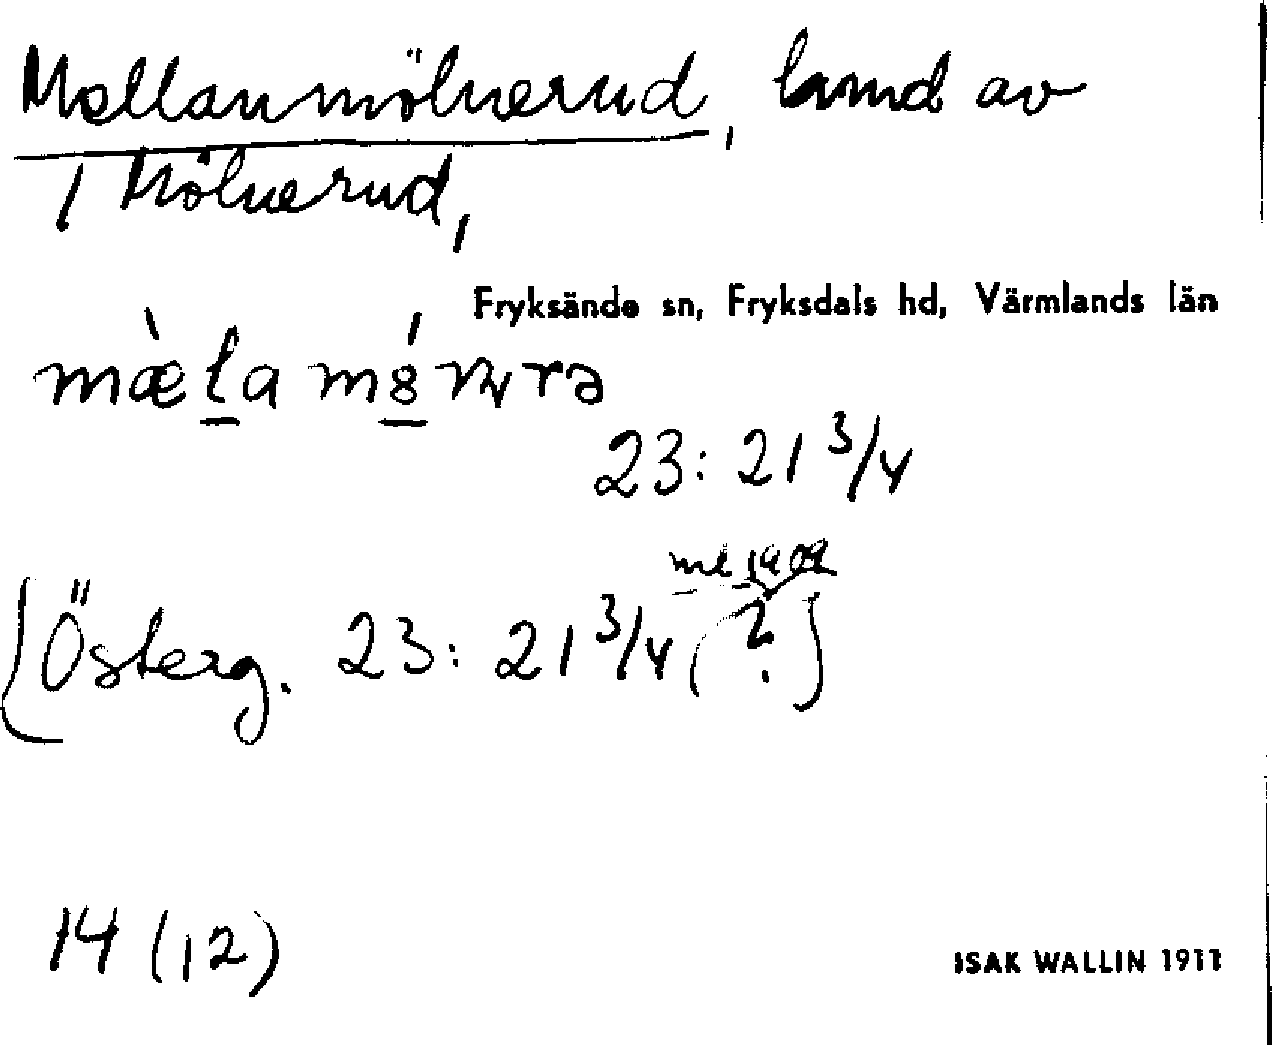 Mellanmölnerud, lamd av
1 Mölnerud,
Fryksände sn, Fryksdals hd, Värmlands län
23: 21 3/4
[Österg. 23: 21 3/4 (?]
14 (12)
ISAK WALLIN 1911